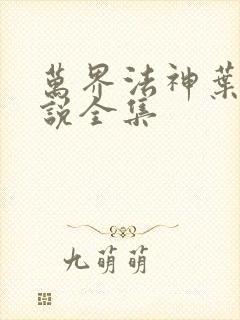 萬界法神葉
說全集
九萌萌